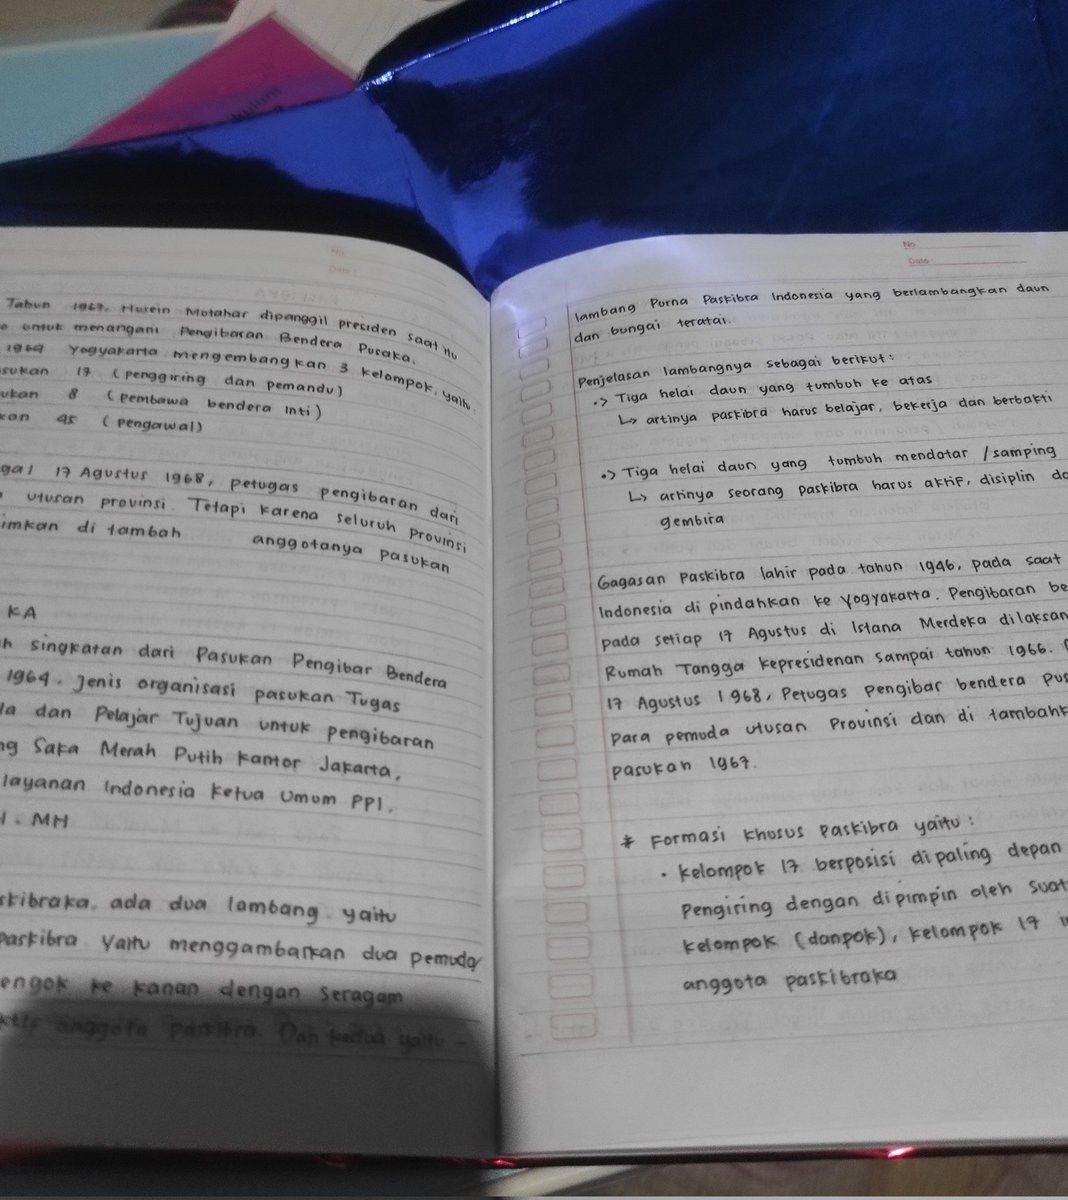 No
Date :
Tahun 1967, Husein Motahar dipanggil presiden saat itu
untuk menangani Pengibaran Bendera Pusaka.
1969 Yogyakarta mengembangkan 3 kelompok, yaitu
sukan 17 (penggiring dan pemandu)
ukan 8 (pembawa bendera inti)
kan 45 (pengawal)
gal 17 Agustus 1968, petugas pengibaran dari
utusan provinsi. Tetapi karena seluruh provinsi
imkan di tambah anggotanya pasukan
KA
h singkatan dari Pasukan Pengibar Bendera
1964. Jenis organisasi pasukan Tugas
la dan Pelajar Tujuan untuk pengibaran
ng Saka Merah Putih kantor Jakarta,
layanan Indonesia ketua Umum PPI.
H. MH
skibraka, ada dua lambang yaitu
paskibra yaitu menggambarkan dua pemuda/
engok ke kanan dengan seragam
ktif anggota paskibra. Dan kedua yaitu -
No
Date :
lambang Purna Paskibra Indonesia yang berlambangkan daun
dan bungai teratai.
Penjelasan lambangnya sebagai berikut :
•> Tiga helai daun yang tumbuh ke atas
↳ artinya paskibra harus belajar, bekerja dan berbakti
•> Tiga helai daun yang tumbuh mendatar /samping
↳ artinya seorang paskibra harus aktif, disiplin da
gembira
Gagasan Paskibra lahir pada tahun 1946, pada saat
Indonesia di pindahkan ke Yogyakarta. Pengibaran be
pada setiap 17 Agustus di Istana Merdeka dilaksan
Rumah Tangga kepresidenan sampai tahun 1966.
17 Agustus 1968, Petugas pengibar bendera pus
para pemuda utusan Provinsi dan di tambahk
pasukan 1967.
* Formasi khusus Paskibra yaitu :
• kelompok 17 berposisi di paling depan
Pengiring dengan dipimpin oleh suat
kelompok (danpok), kelompok 17 i
anggota paskibraka